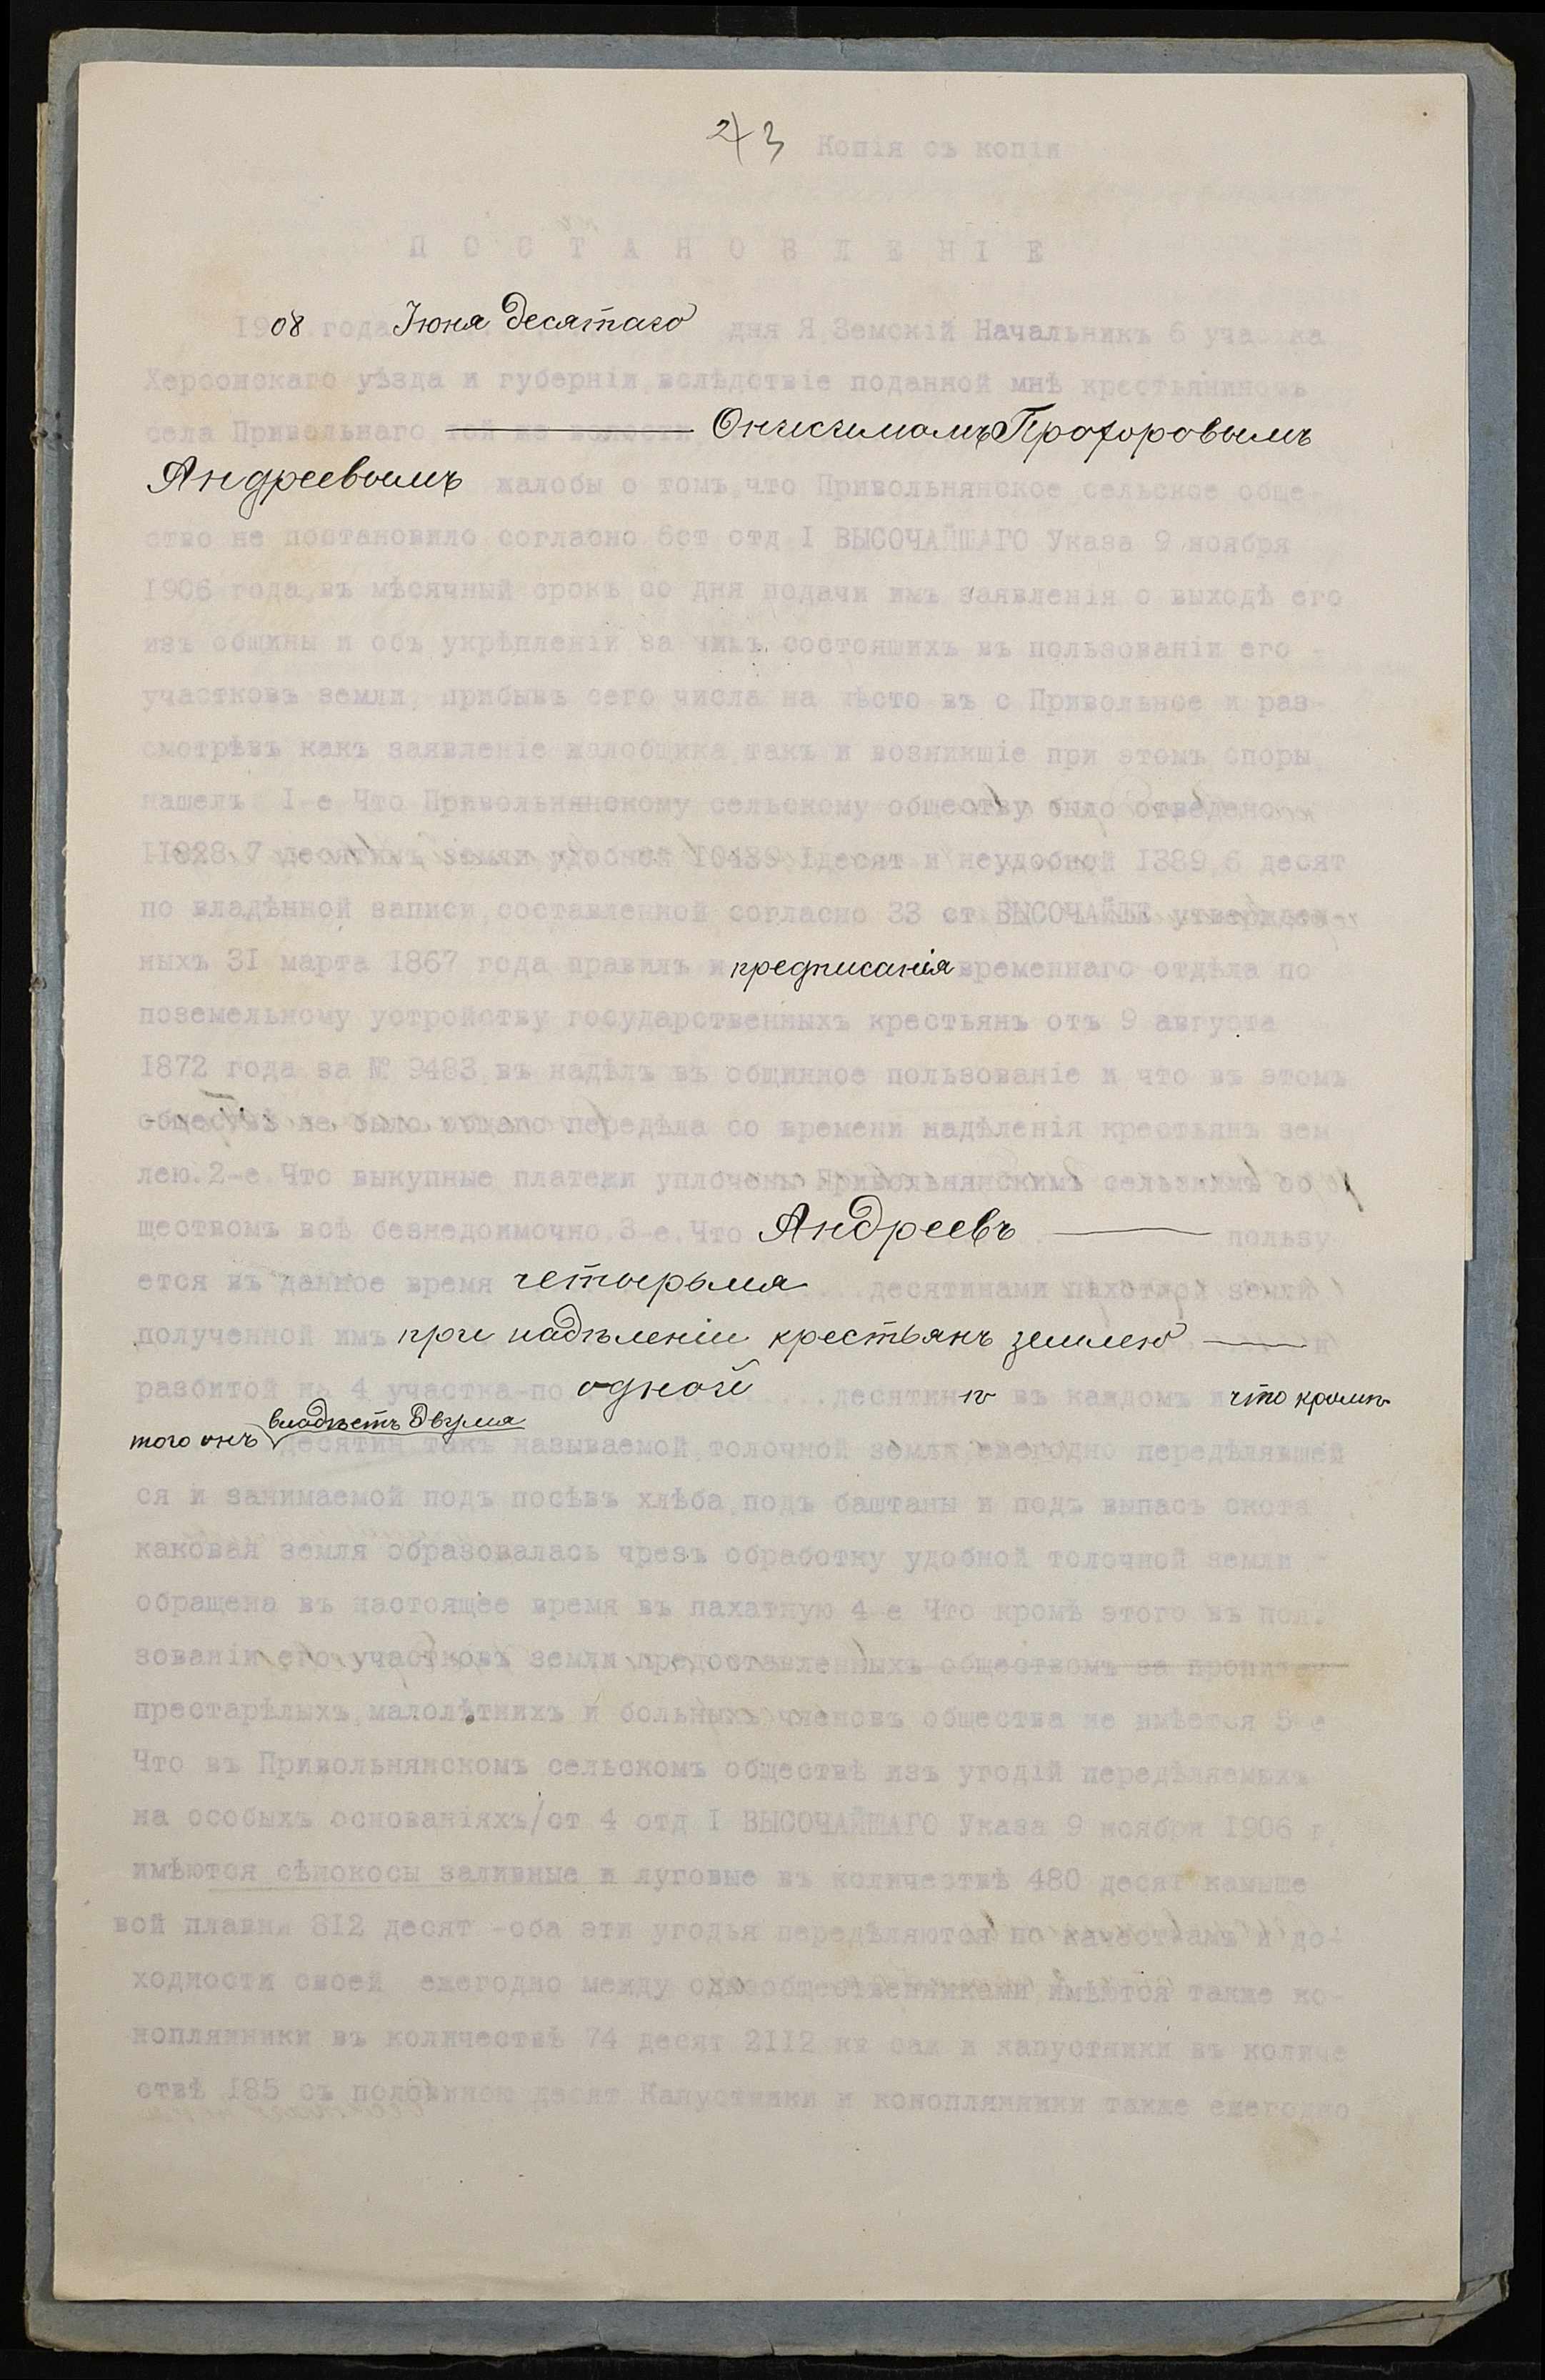 23 Копія съ копіи
П О С Т А Н О В Л Е Н І Е
1908 года Іюня десятаго дня Я Земскій Начальникъ 6 участка
Херсонскаго уѣзда и губерніи, вслѣдствіе поданной мнѣ крестьяниномъ
села Привольнаго той же волости Онисимомъ Прохоровымъ
Андреевымъ жалобы о томъ, что Привольнянское сельское обще-
ство не постановило согласно 6ст отд I ВЫСОЧАЙШАГО Указа 9 ноября
1906 года, въ мѣсячный срокъ со дня подачи имъ заявленія о выходѣ его
изъ общины и объ укрѣпленіи за нимъ состоящихъ въ пользованіи его -
участковъ земли, прибывъ сего числа на мѣсто въ с Привольное и раз-
смотрѣвъ какъ заявленіе жалобщика, такъ и возникшіе при этомъ споры,
нашелъ: I-е Что Привольнянскому сельскому обществу было отведено
11828,7 десятинъ земли удобной 10439,1десят и неудобной 1389,6 десят
по владѣнной записи, составленной согласно 33 ст ВЫСОЧАЙШЕ утвержден
ныхъ 31 марта 1867 года правилъ и предписанія временнаго отдѣла по
поземельному устройству государственныхъ крестьянъ отъ 9 августа
1872 года за № 9483, въ надѣлъ въ общинное пользованіе и что въ этомъ
обществѣ не было общаго передѣла со времени надѣленія крестьянъ зем
лею. 2-е. Что выкупные платежи уплочены Привольнянскимъ сельскимъ об
ществомъ всѣ безнедоимочно. 3-е. Что Андреевъ пользу
ется въ данное время четырьмя ... десятинами пахотной земли
полученной имъ при надѣленіи крестьянъ землею и
разбитой на 4 участка-по одной ... десятинѣ въ каждомъ и что кромѣ
того онъ владѣетъ двумя
десятин такъ называемой, толочной земли ежегодно передѣлявшей
ся и занимаемой подъ посѣвъ хлѣба, подъ баштаны и подъ выпасъ скота
каковая земля образовалась чрезъ обработку удобной толочной земли -
обращена въ настоящее время въ пахатную 4-е Что кромѣ этого въ поль
зованіи его участковъ земли предоставленныхъ обществомъ за
престарѣлыхъ, малолѣтнихъ и больныхъ членовъ общества не имѣется 5-е
Что въ Привольнянскомъ сельскомъ обществѣ изъ угодій передѣляемыхъ
на особыхъ основаніяхъ/ст 4 отд I ВЫСОЧАЙШАГО Указа 9 ноября 1906 г.
имѣются сѣнокосы заливные и луговые въ количествѣ 480 десят камыше
вой плавни 812 десят -оба эти угодья передѣляются по качествамъ и до-
ходности своей ежегодно между однообщественниками, имѣются также ко-
нопляники въ количествѣ 74 десят 2112 кв саж и капустники въ количе
ствѣ 185 съ половиною десят Капустники и конопляники также ежегодно